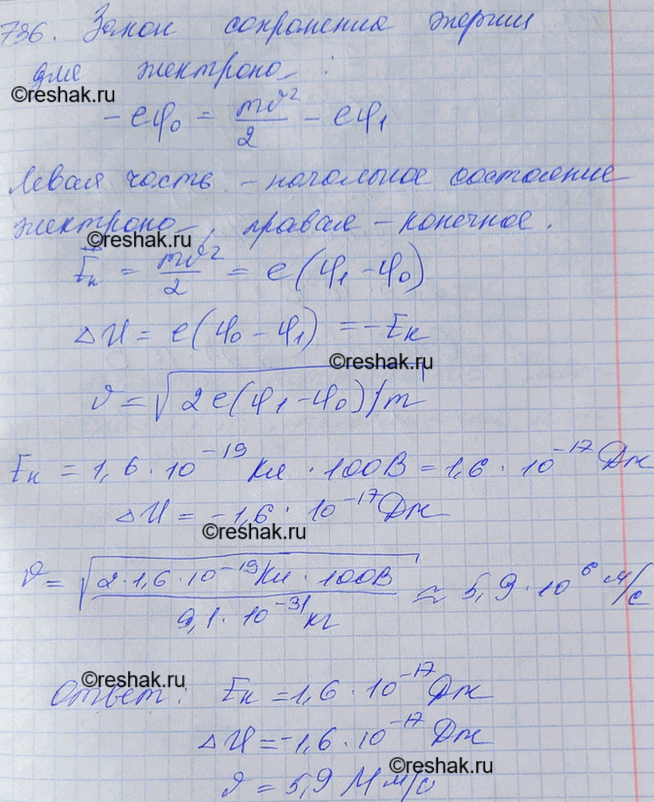 736. Закон сохранения энергии
для электрона :
©reshak.ru
-eφ₀ = mv²/2 - eφ₁
Левая часть - начальное состояние
электрона, правая - конечное.
©reshak.ru
Eк = mv²/2 = e(φ₁-φ₀)
ΔU = e(φ₀-φ₁) = -Eк
©reshak.ru
v = √2e(φ₁-φ₀)/m
Eк = 1,6·10⁻¹⁹ Кл · 100В = 1,6·10⁻¹⁷ Дж
ΔU = -1,6·10⁻¹⁷ Дж
©reshak.ru
v = √(2·1,6·10⁻¹⁹Кл·100В / 9,1·10⁻³¹кг) ≈ 5,9·10⁶ м/с
©reshak.ru
Ответ: Eк = 1,6·10⁻¹⁷ Дж
ΔU = -1,6·10⁻¹⁷ Дж
©reshak.ru
v = 5,9 Мм/с